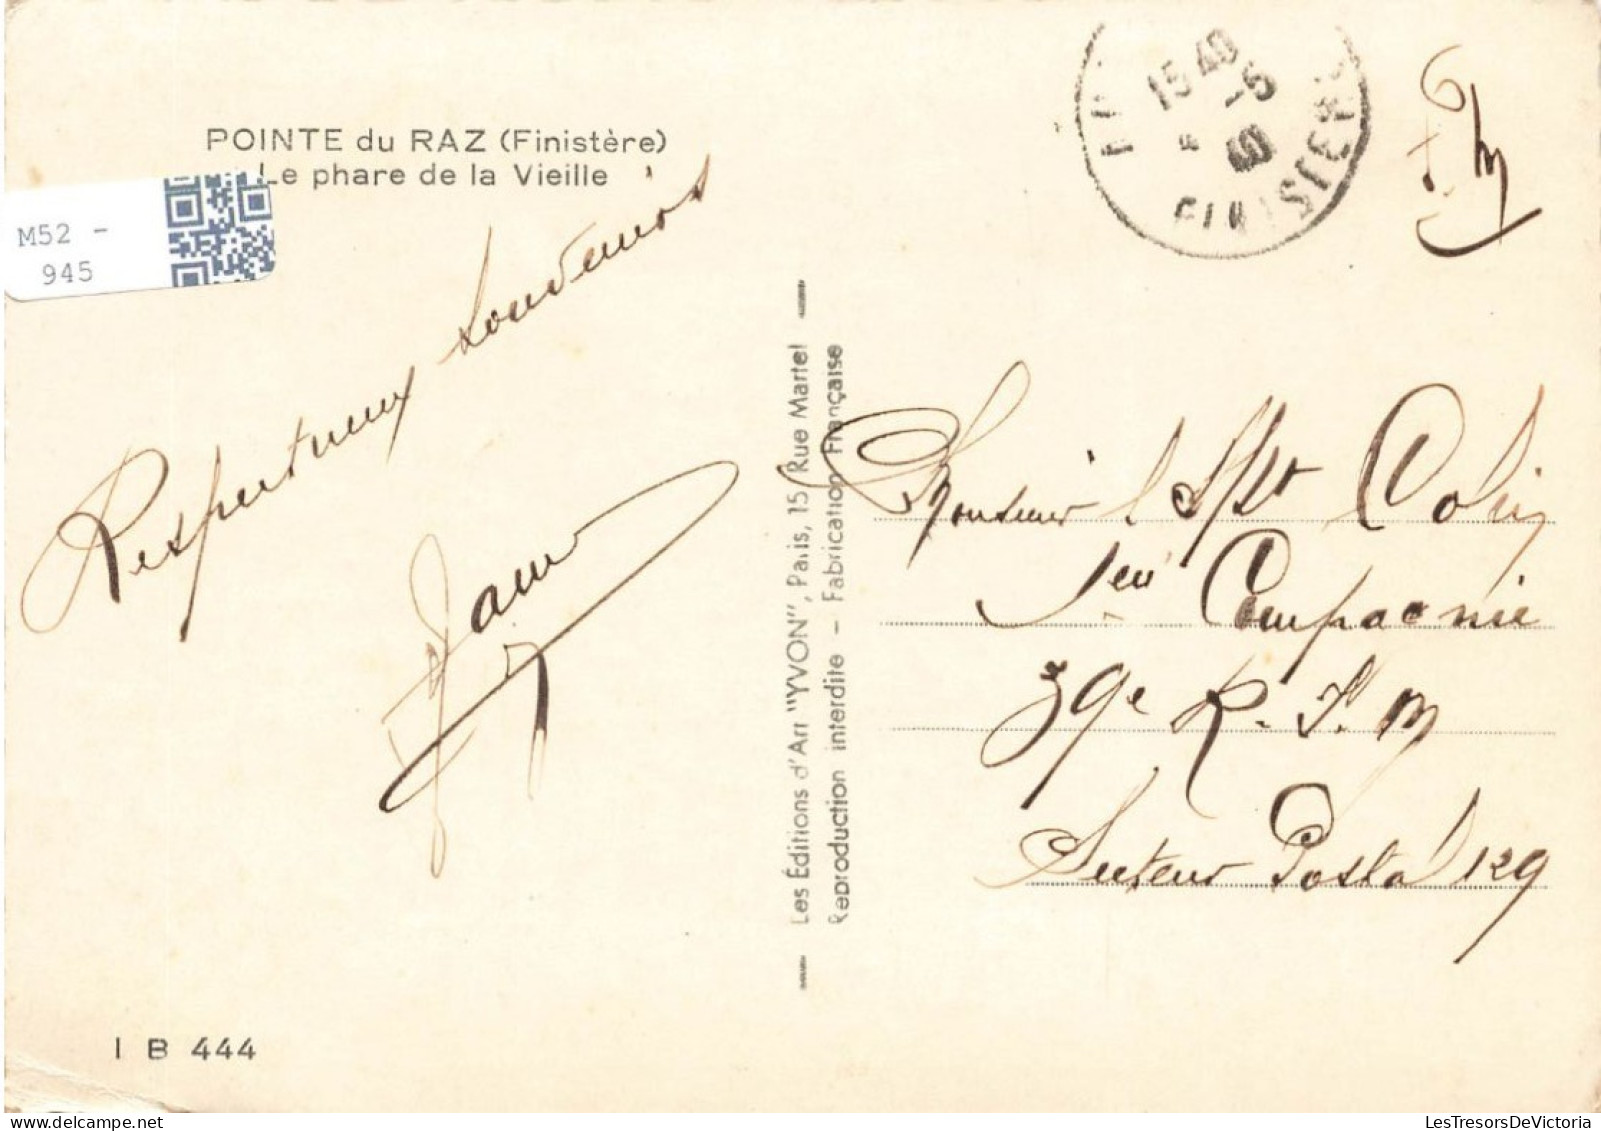 POINTE du RAZ (Finistère)
Le phare de la Vieille
M52 -
945
15 40
-5
40
FINISTERE
F.M
Respectueux Souvenirs
Les Éditions d'Art "YVON", Paris, 15 Rue Martel
Reproduction interdite - Fabrication Française
Monsieur l S/Lt Colin
1ère Compagnie
39e R. I. M
Secteur Postal 129
I B 444
LesTresorsDeVictoria.com